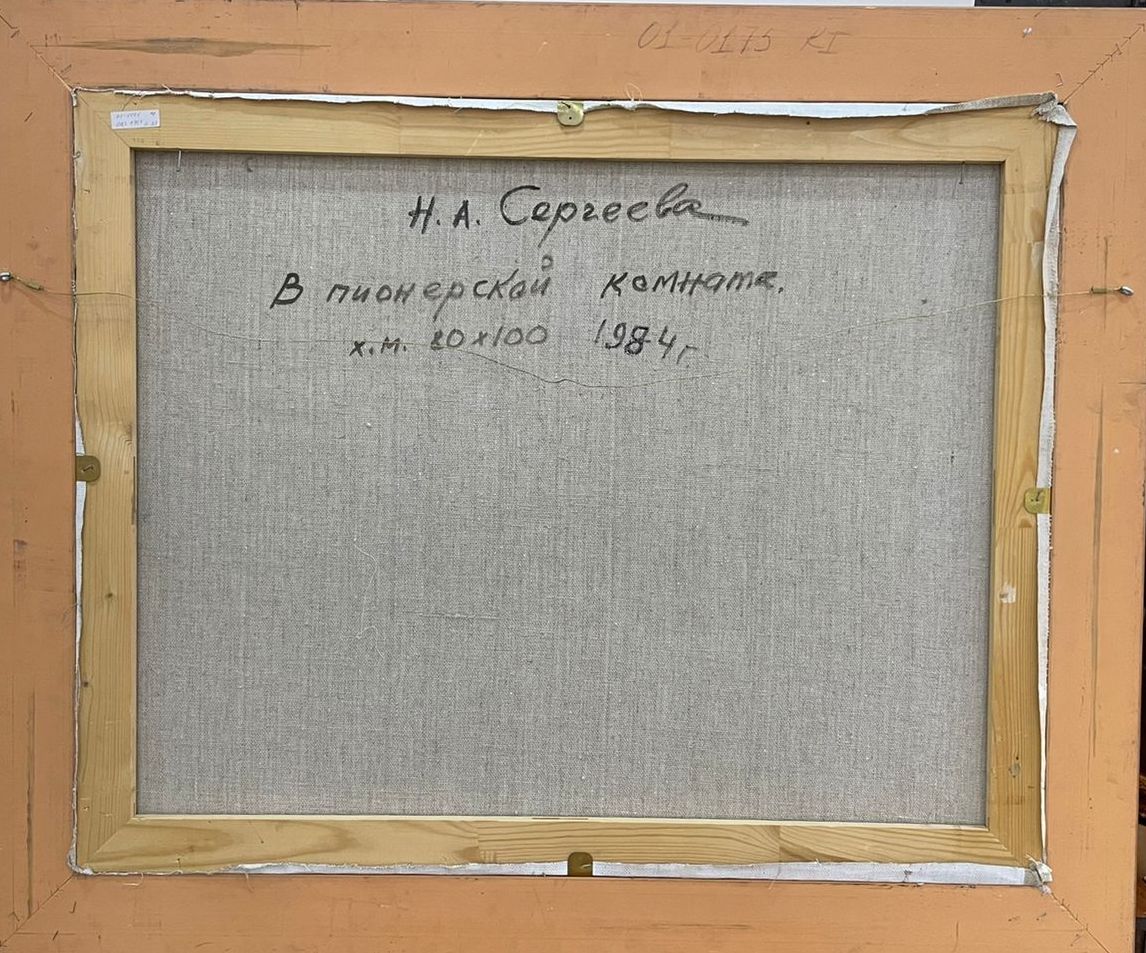 01-0175 KI
Н. А. Сергеева
В пионерской комнате.
х.м. 80х100 1984г